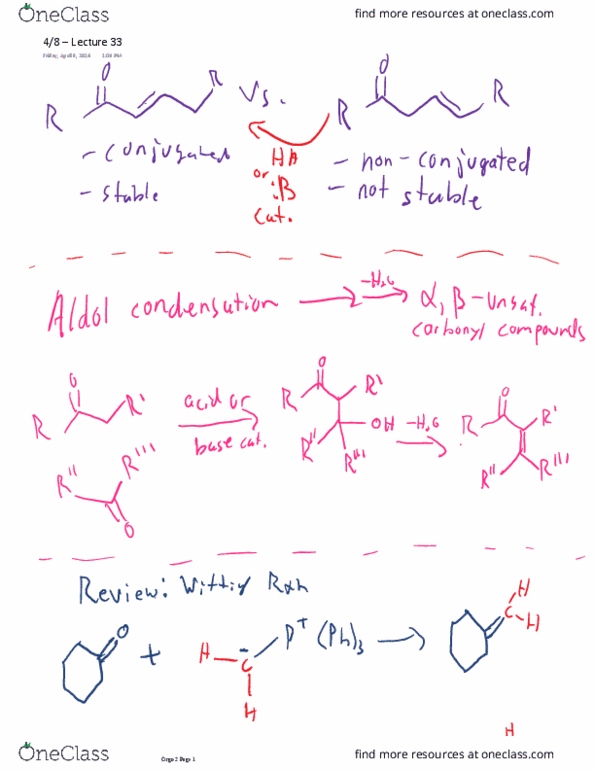 OneClass find more resources at oneclass.com
4/8 – Lecture 33
Friday, April 8, 2016 1:04 PM
O R Vs. O R
R R
- conjugated HA - non-conjugated
- stable or :B - not stable
cat.
Aldol condensation → -H2O → α, β-unsat.
carbonyl compounds
O R' acid or O R' O R'
R base cat. R OH -H2O R
R'' R''' R'' R''' R'' R'''
O
Review: Wittig Rxn
O + H - C P+ (Ph)3 → C H
H H
H
OneClass Orgo 2 Page 1 find more resources at oneclass.com